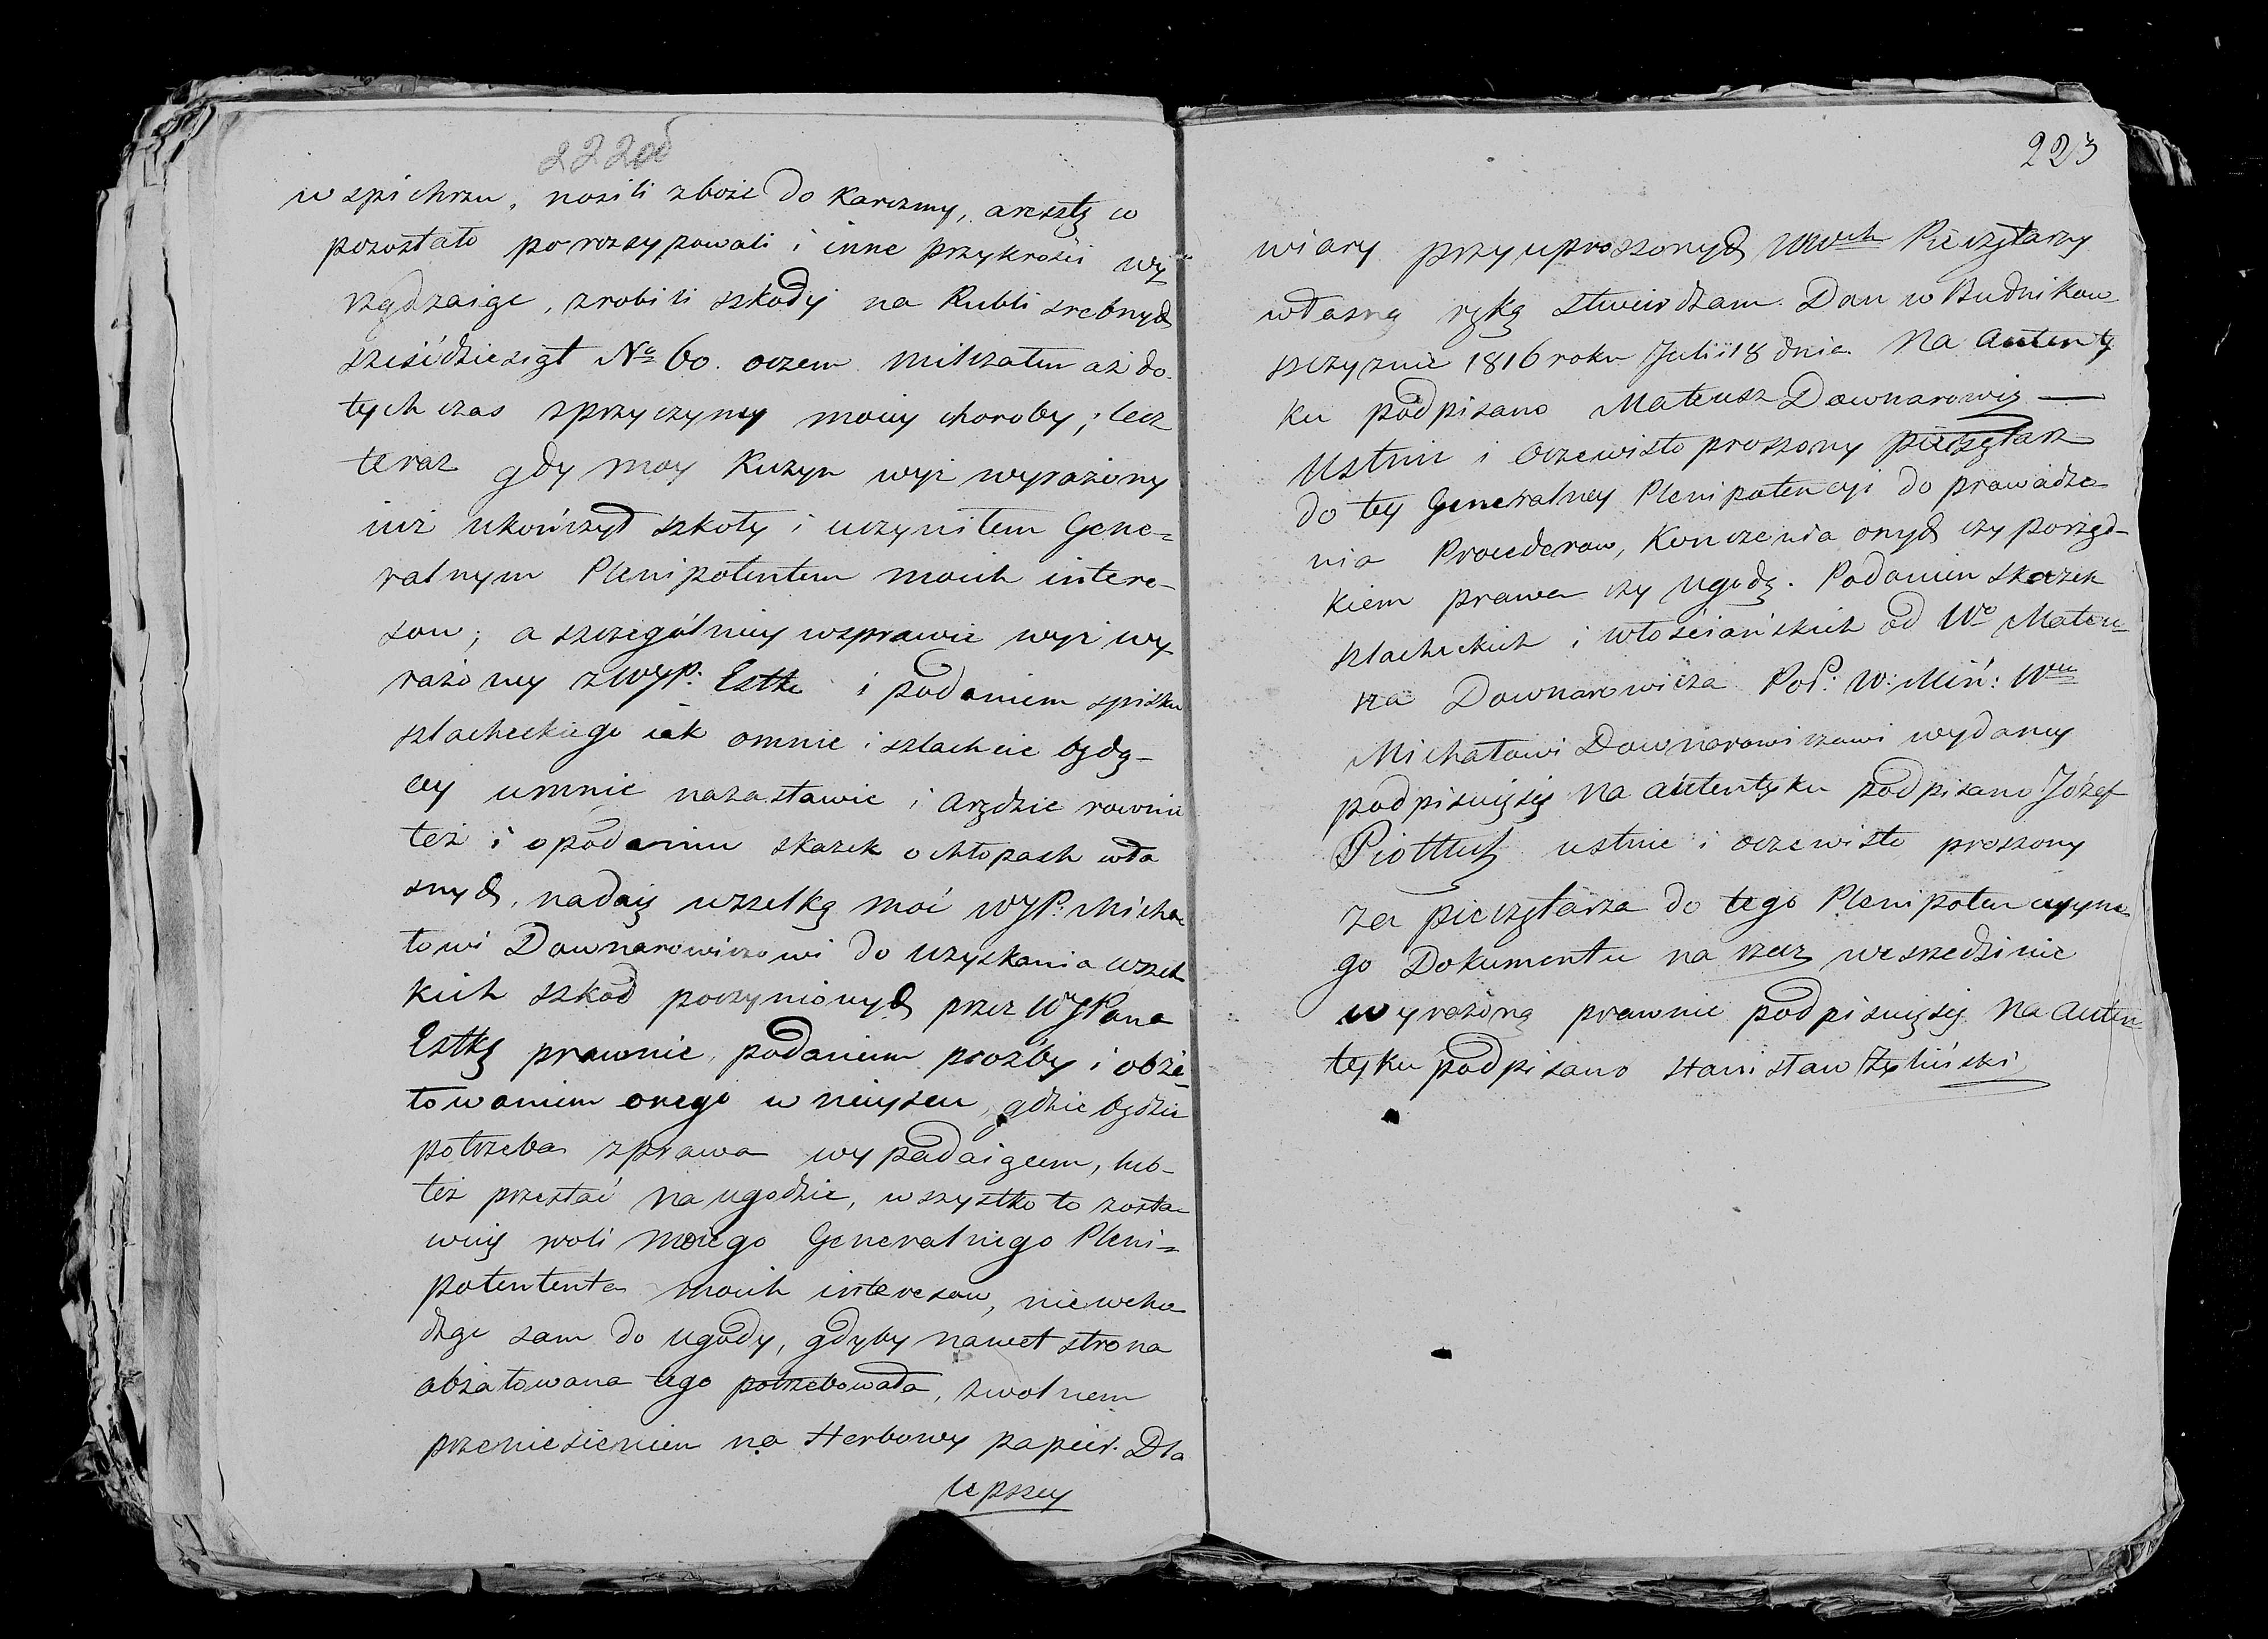 222 об
w spichrzu, nosili zboże do Karczmy, aresztę co
pozostało porozsypowali i inne przykrości wy
rządzaiąc, zrobili szkody na Rubli srebnych
sześćdziesiąt No 60. oczem milczałem aż do
tych czas zprzyczyny moiey choroby; lecz
teraz gdy moy Kuzyn wyż wyrażony
iuż ukończył szkoły i uczyniłem Gene=
ralnym Plenipotentem moich intere-
sow; a szczegółniey wsprawie wyż wy
rażoney z WJP: Estką i podaniem spisku
szlacheckiego iak omnie i szlachcie będą-
cey umnie nazastawie i Arędzie rownie
też i opodaniu skazek ochłopach wła
snych, nadaię wszelką moć WJP: Micha
łowi Downarowiczowi do uzyskania wszel
kich szkod poczynionych przez WJPana
Estkę prawnie, podaniem prozby i obża-
łowaniem onego w mieyscu, gdzie będzie
potrzeba zprawa wypadaiącem, lub-
też przestać na ugodzie, wszystko to zosta-
wuię woli moiego Generalnego Pleni=
potententa moich interesow, niewcho
dząc sam do ugody, gdyby nawet strona
obżałowana tego potrzebowała, zwolnem
przeniesieniem na Herbowy papier. Dla
lepszey
223
wiary przy uproszonych WWch Pieczętarzy
własną ręką stwierdzam. Dan w Budnikow
szczyznie 1816 roku Julii 18 dnia. Na Autenty
ku podpisano Mateusz Downarowicz —
Ustnie i Oczewisto proszony pieczętarz
do tey Generalney Plenipotencyi do prowadze
nia Procederow, Konczenia onych czy porząd-
kiem prawa czy ugodą. Podaniu skazek
szlacheckich i włościańskich od Wo Mateu-
sza Downarowicza Pod: W: Miń: Wu
Michałowi Downarowiczowi wydaney
podpisuięsię Na autentyku podpisano Józef
Piottuch ustnie i oczewisto proszony
za pieczętarza do tego Plenipotencyyne
go Dokumentu na rzecz weszrzedzinie
wyrażoną prawnie podpisuięsię Na Auten
tyku podpisano Stanisław Żyliński